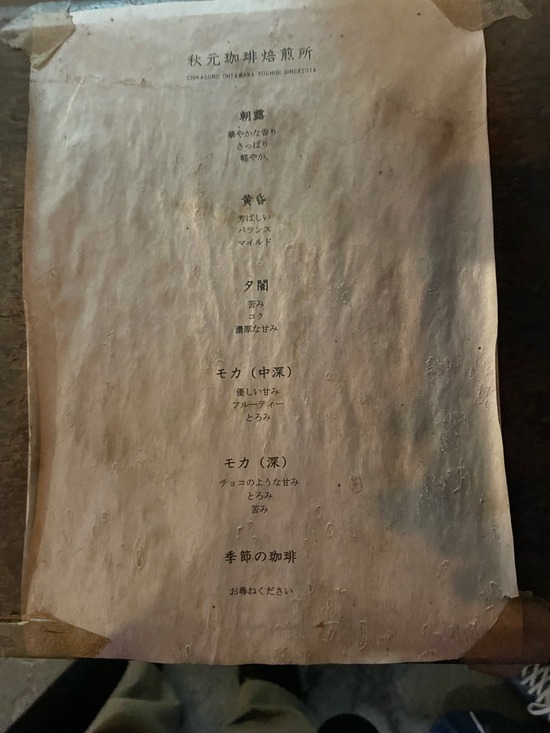 秋元珈琲焙煎所
CHIKASONO OHTAWARA TOCHIGI SINCE2014
朝露
華やかな香り
さっぱり
軽やか
黄昏
芳ばしい
バランス
マイルド
夕闇
苦み
コク
濃厚な甘み
モカ（中深）
優しい甘み
フルーティー
とろみ
モカ（深）
チョコのような甘み
とろみ
苦み
季節の珈琲
お尋ねください